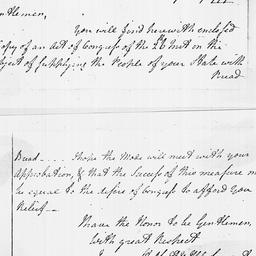 ntlemen,
you will find herewith enclosed
Copy of an act of Congress of the 26 Inst on the
bject of supplying the People of your State with
Bread
Bread .... I hope the Mode will meet with your
Approbation, & that the success of this measure m
be equal to the desire of Congress to afford you
Relief —
I have the Honor to be Gentlemen,
With great Respect